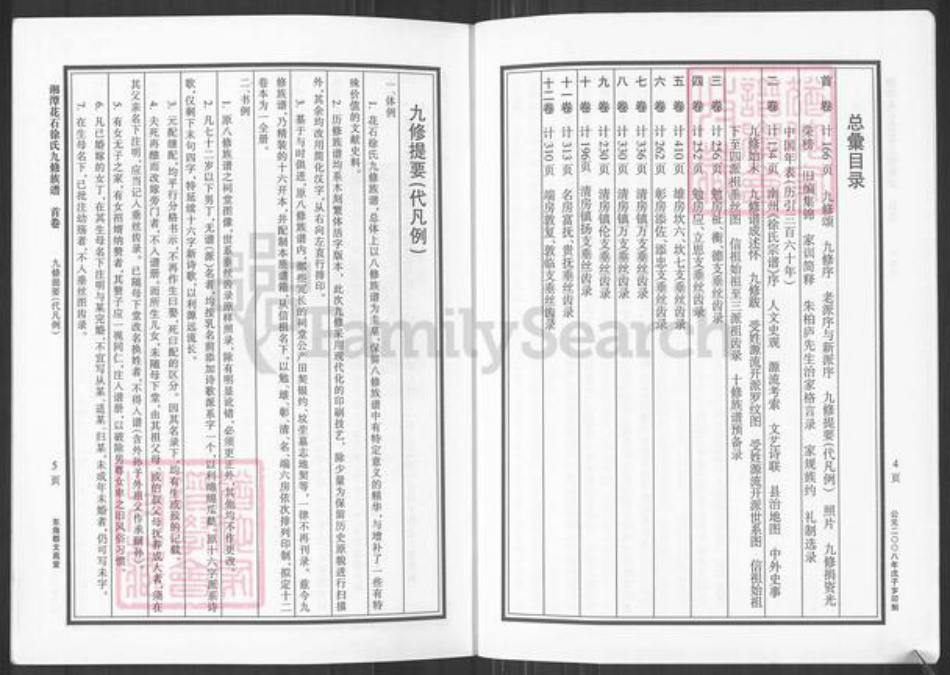 总彙目录
首 卷 计166页 九修颂 九修序 老派序与新派序 九修提要(代凡例) 照片 九修捐资光
荣榜 旧编集锦 家训简释 朱柏庐先生治家格言录 家规族约 礼制选录
中国年表(历引三百六十年)
二 卷 计134页 南州(徐氏宗谱)序 人文史观 源流考索 文艺诗联 县治地图 中外史事
九修始末 九修谱成述怀 九修跋 受姓源流开派罗纹图 受姓源流开派世系图 信祖始祖
下至四派祖垂丝图 信祖始祖至三派祖齿录 十修族谱预备录
三 卷 计216页 勉房祗、衡、德支垂丝齿录
四 卷 计252页 勉房应、立思支垂丝齿录
五 卷 计410页 雄房坎六、坎七支垂丝齿录
六 卷 计262页 彰房添佐、添忠支垂丝齿录
七 卷 计336页 清房镇万支垂丝齿录
八 卷 计330页 清房镇万支垂丝齿录
九 卷 计230页 清房镇伦支垂丝齿录
十 卷 计196页 清房镇扬支垂丝齿录
十一卷 计313页 名房富抚、贵抚垂丝齿录
十二卷 计310页 端房敦复、敦临支垂丝齿录
4页
公元二〇〇八年戊子字印制
九修提要(代凡例)
一、体例
1. 花石徐氏九修族谱,总体上以八修族谱为主草,保留八修族谱中有特定意义的精华,与增补了一些有特
殊价值的文献史料。
2. 历修族谱均系木刻繁体活字版本。此次九修采用现代化的印刷技艺。除少量为保留历史原貌进行扫描
外,其余均改用简化汉字,从右向左直行排印。
3. 基于与时俱进,原八修族谱内,那些冗长的祠堂公产田契银约、坟茔墓志地契等,一律不再刊录。兹今九
修族谱,乃精装的十六开本,并配制本族谱箱。从信祖名下,以勉、雄、彰、清、名、端六房依次排列印制,拟定十二
卷本为一全册。
二、书例
1. 原八修族谱之祠堂图像,世系垂丝齿录原样照录,除有明显讹错,必须更正外,其他均不作更改。
2. 凡七十二岁以下男丁,无谱(派)名者,均按乳名前添加诗歌派系字一个,以利雎雎瓜瓞。原十六字派系诗
歌,仅剩下末句四字,特延续十六字新诗歌,以利源远流长。
3. 元配继配,均平行分格书示,不再作生曰娶、死曰配的区分。因其名录下,均有生或殁的记载。
4. 夫死再醮而改嫁旁门者,不入谱册。而所生儿女,未随母下堂,由其祖父母,或伯叔父母抚养成人者,须在
其父亲名下注明,应当记入垂丝齿录。已随母下堂改名换姓者,不得入谱(含外孙子外祖父作承嗣孙)。
5. 有女无子之家,有女招婿纳赘者,其赘子应一视同仁,注入谱册,以破除男尊女卑之旧风俗习惯。
6. 凡已婚嫁的女丁,在其生母名下注明与某完婚,不宜写从某、适某、归某,未成年未婚者,仍可写未字。
7. 在生母名下,已批注幼殇者,不入垂丝图齿录。
湘潭花石徐氏九修族谱 首卷 九修提要(代凡例)
5页
东海郡文苑堂
FamilySearch